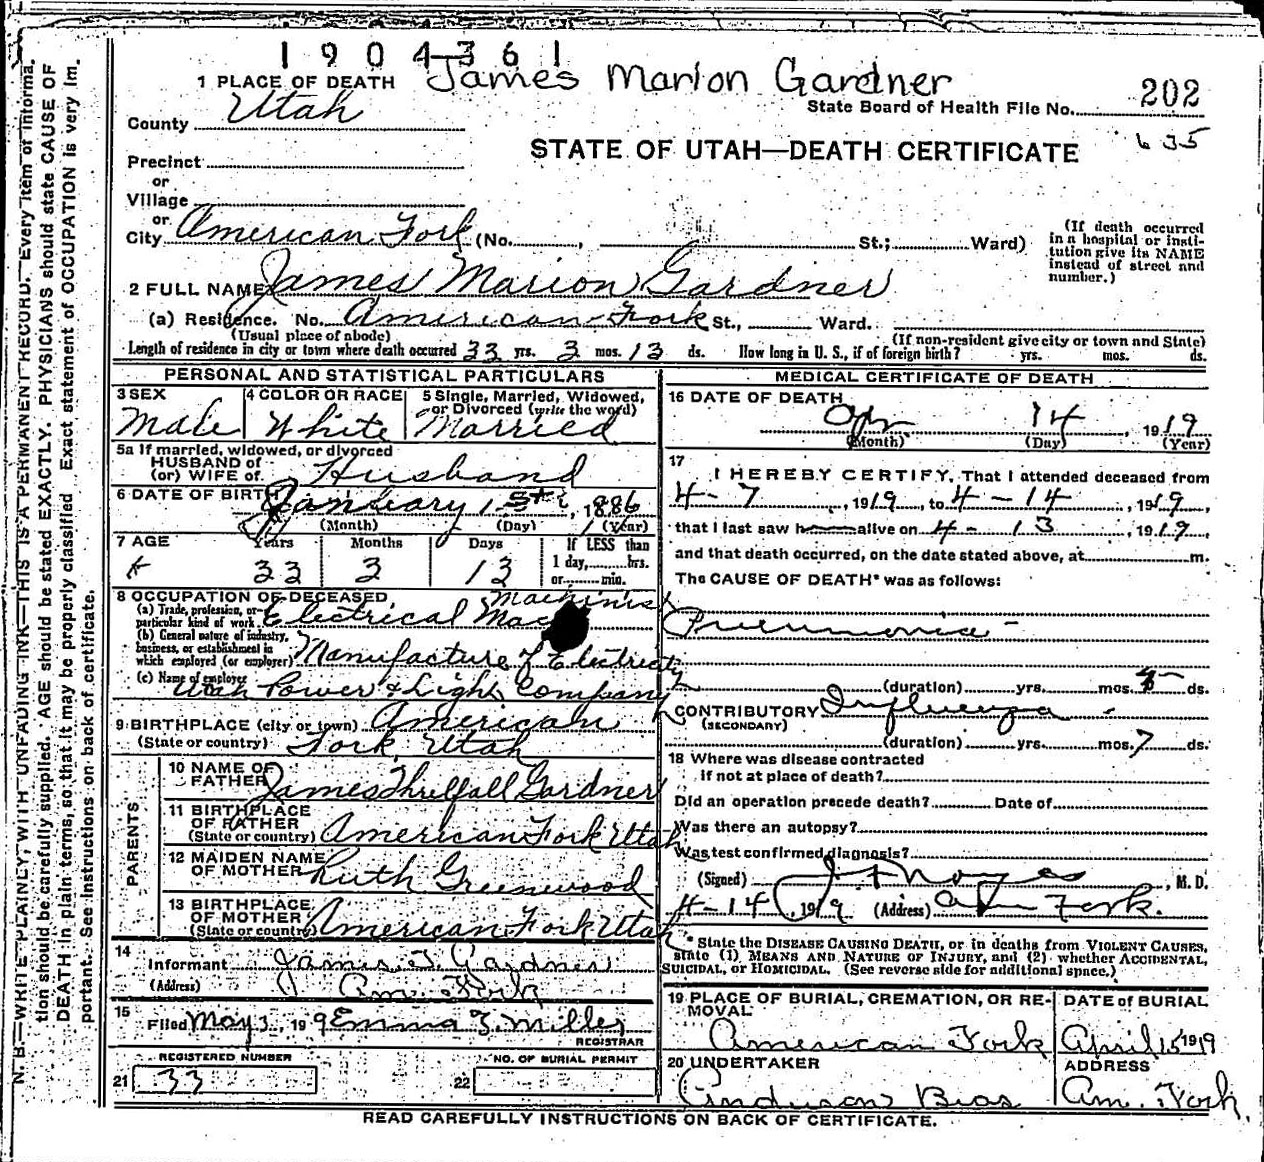 1904361
James Marion Gardner
1 PLACE OF DEATH
State Board of Health File No. 202
County Utah
635
STATE OF UTAH—DEATH CERTIFICATE
Precinct
or
Village
or
City American Fork (No. , St.; Ward)
(If death occurred in a hospital or institution give its NAME instead of street and number.)
2 FULL NAME James Marion Gardner
(a) Residence. No. American Fork St., Ward.
(Usual place of abode) (If non-resident give city or town and State)
Length of residence in city or town where death occurred 33 yrs. 3 mos. 13 ds. How long in U. S., if of foreign birth? yrs. mos. ds.
PERSONAL AND STATISTICAL PARTICULARS
3 SEX Male
4 COLOR OR RACE White
5 Single, Married, Widowed, or Divorced (write the word) Married
5a If married, widowed, or divorced
HUSBAND of
(or) WIFE of Husband
6 DATE OF BIRTH January 1st, 1886
(Month) (Day) (Year)
7 AGE Years Months Days If LESS than
33 3 13 1 day, hrs.
or min.
8 OCCUPATION OF DECEASED Machinist
(a) Trade, profession, or particular kind of work Electrical Mac
(b) General nature of industry, business, or establishment in which employed (or employer) Manufacture of Electricity
(c) Name of employer Utah Power & Light Company
9 BIRTHPLACE (city or town) American
(State or country) Fork, Utah
PARENTS
10 NAME OF FATHER James Thrilfall Gardner
11 BIRTHPLACE OF FATHER
(State or country) American Fork Utah
12 MAIDEN NAME OF MOTHER Ruth Greenwood
13 BIRTHPLACE OF MOTHER
(State or country) American Fork Utah
14 Informant James T. Gardner
(Address) Am. Fork
15 Filed May 3, 1919 Emma Z. Miller
REGISTRAR
REGISTERED NUMBER
21 33
NO. OF BURIAL PERMIT
22
MEDICAL CERTIFICATE OF DEATH
16 DATE OF DEATH
Apr 14, 1919
(Month) (Day) (Year)
17
I HEREBY CERTIFY, That I attended deceased from
4-7, 1919, to 4-14, 1919,
that I last saw h alive on 4-13, 1919,
and that death occurred, on the date stated above, at m.
The CAUSE OF DEATH* was as follows:
Pneumonia -
(duration) yrs. mos. ds.
CONTRIBUTORY Influenza -
(SECONDARY)
(duration) yrs. mos. 7 ds.
18 Where was disease contracted
if not at place of death?
Did an operation precede death? Date of
Was there an autopsy?
Was test confirmed diagnosis?
(Signed) J F Noyes, M. D.
4-14, 1919 (Address) Am Fork.
* State the DISEASE CAUSING DEATH, or in deaths from VIOLENT CAUSES,
state (1) MEANS AND NATURE OF INJURY, and (2) whether ACCIDENTAL,
SUICIDAL, or HOMICIDAL. (See reverse side for additional space.)
19 PLACE OF BURIAL, CREMATION, OR REMOVAL
American Fork
DATE of BURIAL
April 15 1919
20 UNDERTAKER
Anderson Bros
ADDRESS
Am. Fork.
READ CAREFULLY INSTRUCTIONS ON BACK OF CERTIFICATE.
N. B.—WRITE PLAINLY, WITH UNFADING INK—THIS IS A PERMANENT RECORD. Every item of informa-
tion should be carefully supplied. AGE should be stated EXACTLY. PHYSICIANS should state CAUSE OF
DEATH in plain terms, so that it may be properly classified. Exact statement of OCCUPATION is very im-
portant. See instructions on back of certificate.